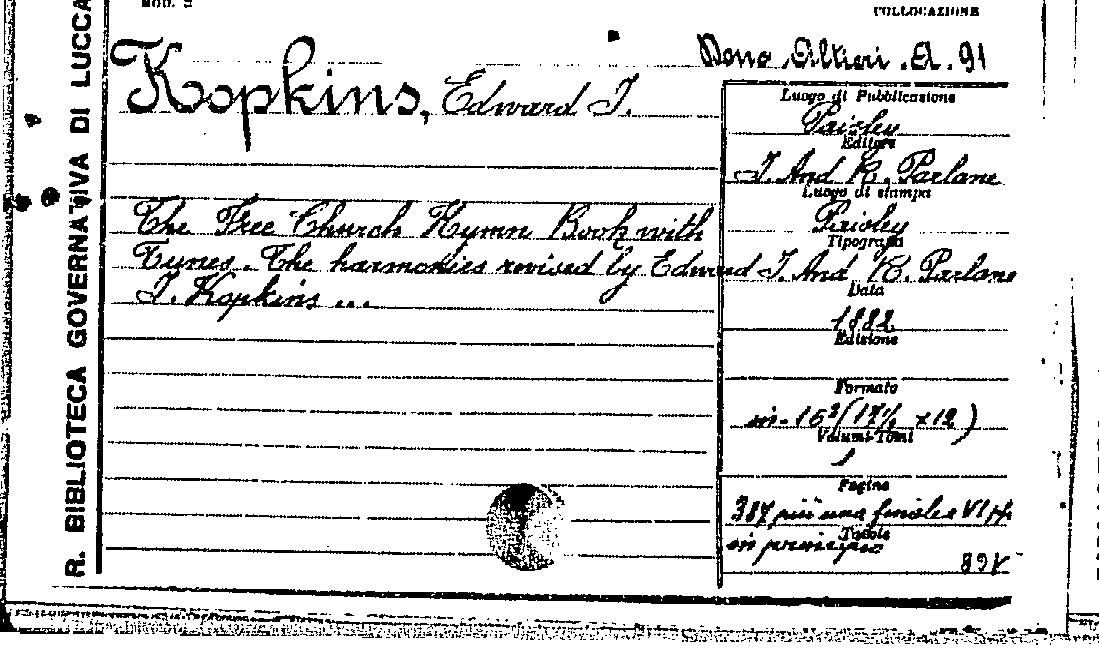 MOD. 
COLLOCAZIONE
Dono Altieri. A. 91
R. BIBLIOTECA GOVERNATIVA DI LUCCA
Hopkins, Edward J.
The Free Church Hymn Book with
Tunes. The harmonies revised by Edward
J. Hopkins ...
Luogo di Pubblicazione
Paisley
Editore
J. And R. Parlane
Luogo di stampa
Paisley
Tipografia
J. And R. Parlane
Data
1882
Edizione
Formato
in-16º (17½ x12)
Volumi-Tomi
1
Pagine
387 più una finale e VI
Tavole
in principio